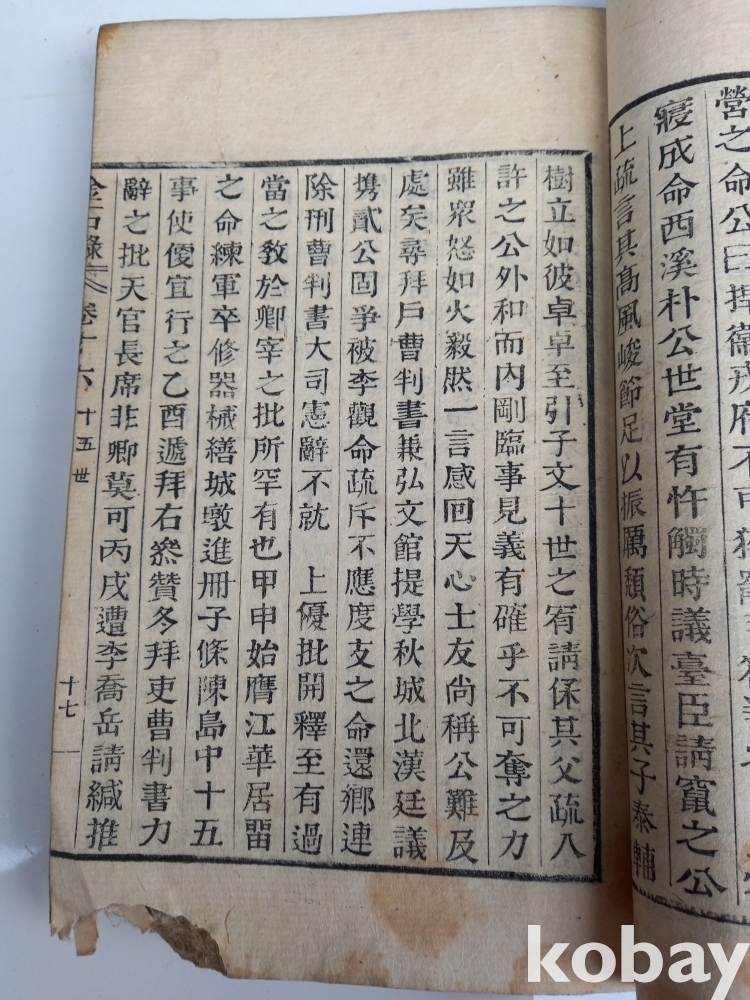 營之命公曰
寢成命西溪朴公世堂有忤觸時議臺臣請竄之公
上疏言其高風峻節足以振厲頹俗次言其子泰輔
樹立如彼卓卓至引子文十世之宥請保其父疏入
許之公外和而內剛臨事見義有確乎不可奪之力
雖衆怒如火毅然一言感回天心士友尚稱公難及
處矣尋拜戶曹判書兼弘文館提學秋城北漢廷議
携貳公固爭被李觀命疏斥不應度支之命還鄉連
除刑曹判書大司憲辭不就 上優批開釋至有過
當之敎於卿宰之批所罕有也甲申始膺江華居畱
之命練軍卒修器械繕城墩進冊子條陳島中十五
事使便宜行之乙酉遞拜右叅贊冬拜吏曹判書力
辭之批天官長席非卿莫可丙戌遭李喬岳請緘推
金石錄 卷十六 十五世 十七
kobay